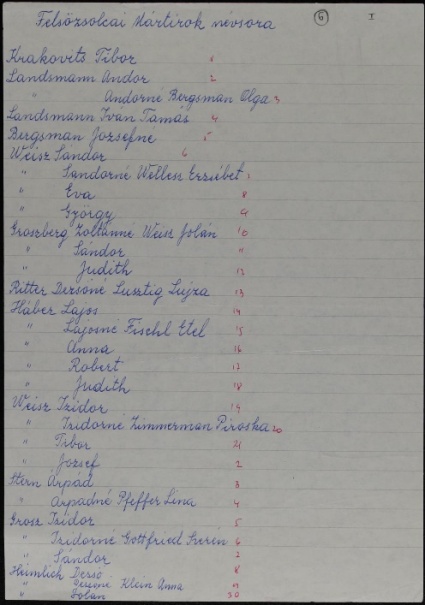 Felsőzsolcai Mártírok névsora I
Krakovits Tibor 1
Landsmann Andor 2
" Andorné Bergsman Olga 3
Landsmann Iván Tamás 4
Bergsman Jozsefné 5
Weisz Sándor 6
" Sandorné Wellesz Erzsébet 7
" Eva 8
" György 9
Groszberg Zoltánné Weisz Jolán 10
" Sándor 11
" Judith 12
Ritter Dezsőné Lusztig Lujza 13
Háber Lajos 14
" Lajosné Fischl Etel 15
" Anna 16
" Robert 17
" Judith 18
Weisz Izidor 19
" Izidorné Zimmerman Piroska 20
" Tibor 21
" Jozsef 2
Stern Árpád 3
" Arpádné Pfeffer Lina 4
Grosz Izidor 5
" Izidorné Gottfried Szerén 6
" Sándor 7
Heimlich Dezső 8
" Dezsőné Klein Anna 9
" Jolán 30